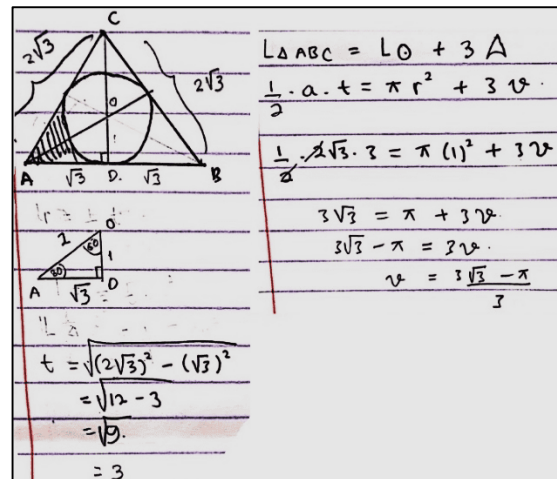 C
2√3
2√3
O
1
A √3 D. √3 B
2 O
60
1
A 30 √3 D
t = √(2√3)² - (√3)²
= √12 - 3
= √9.
= 3
L△ ABC = L⊙ + 3 A
1/2 . a . t = π r² + 3 v.
1/2 . 2√3 . 3 = π (1)² + 3v
3√3 = π + 3v
3√3 - π = 3v.
v = 3√3 - π / 3